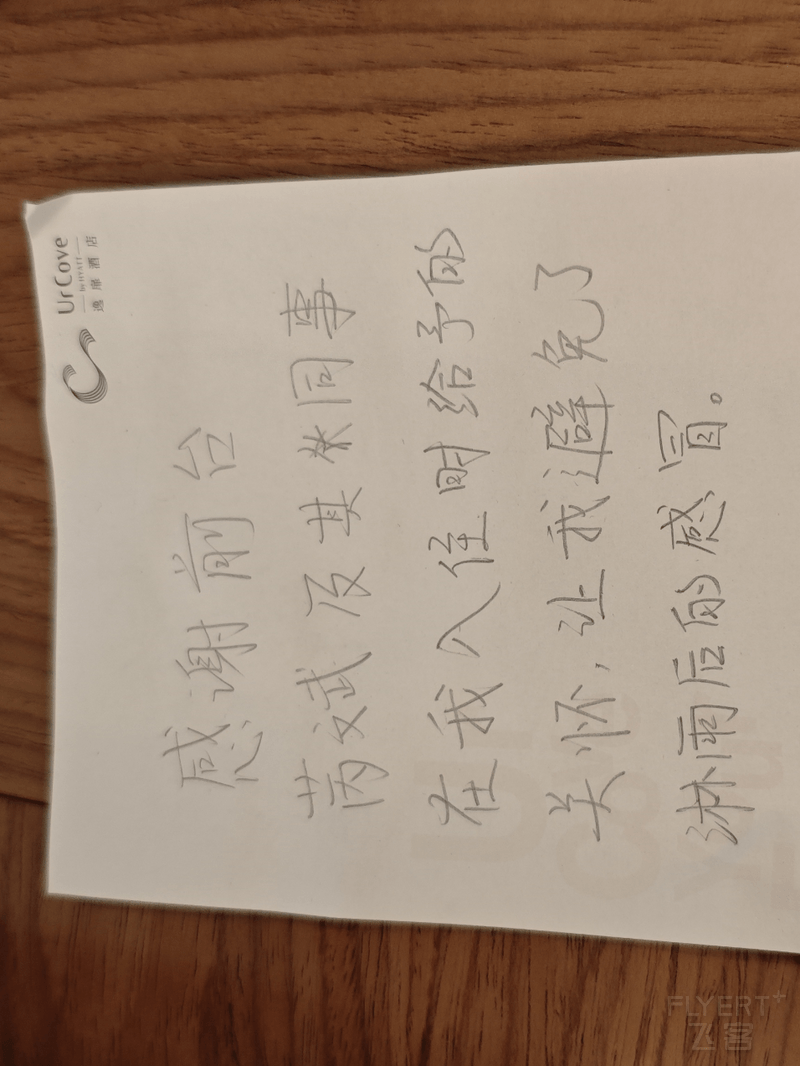 UrCove
by HYATT
逸扉酒店
感谢前台
斌及其同事
在我入住时给予的
关怀,让我避免了
淋雨后的感冒。
FLYERT+
飞客